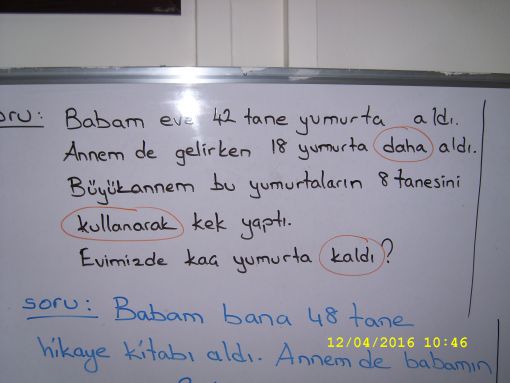 soru: Babam eve 42 tane yumurta aldı.
Annem de gelirken 18 yumurta daha aldı.
Büyükannem bu yumurtaların 8 tanesini
kullanarak kek yaptı.
Evimizde kaç yumurta kaldı?
soru: Babam bana 48 tane
hikaye kitabı aldı. Annem de babamın
12/04/2016 10:46